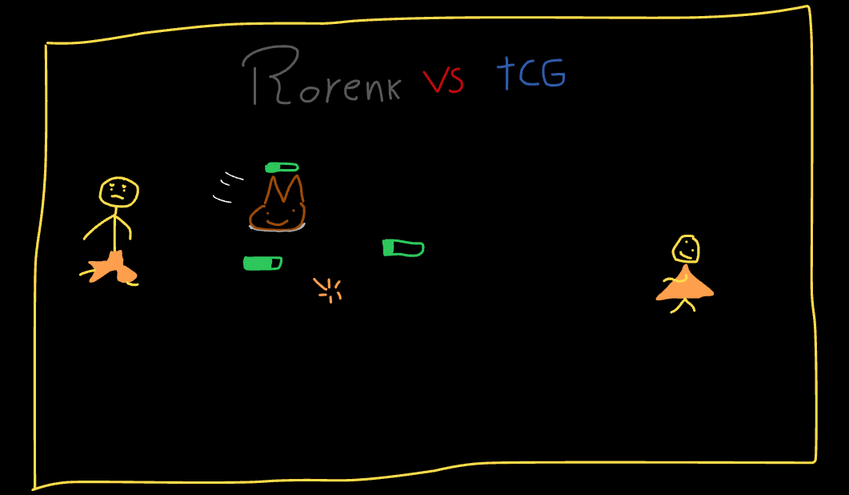 Rorenk vs tCG